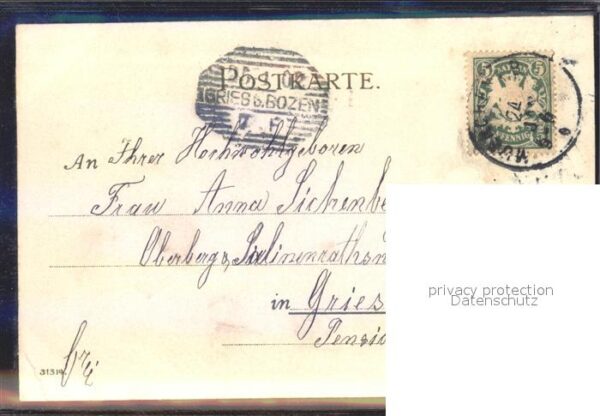 POSTKARTE.
GRIES b. BOZEN
5
5
PFENNIG
24
An Ihrer Hochwohlgeboren
Frau Anna Sichenbe
Oberbergs, Salinenraths
in Gries
Pensio
privacy protection
Datenschutz
31314